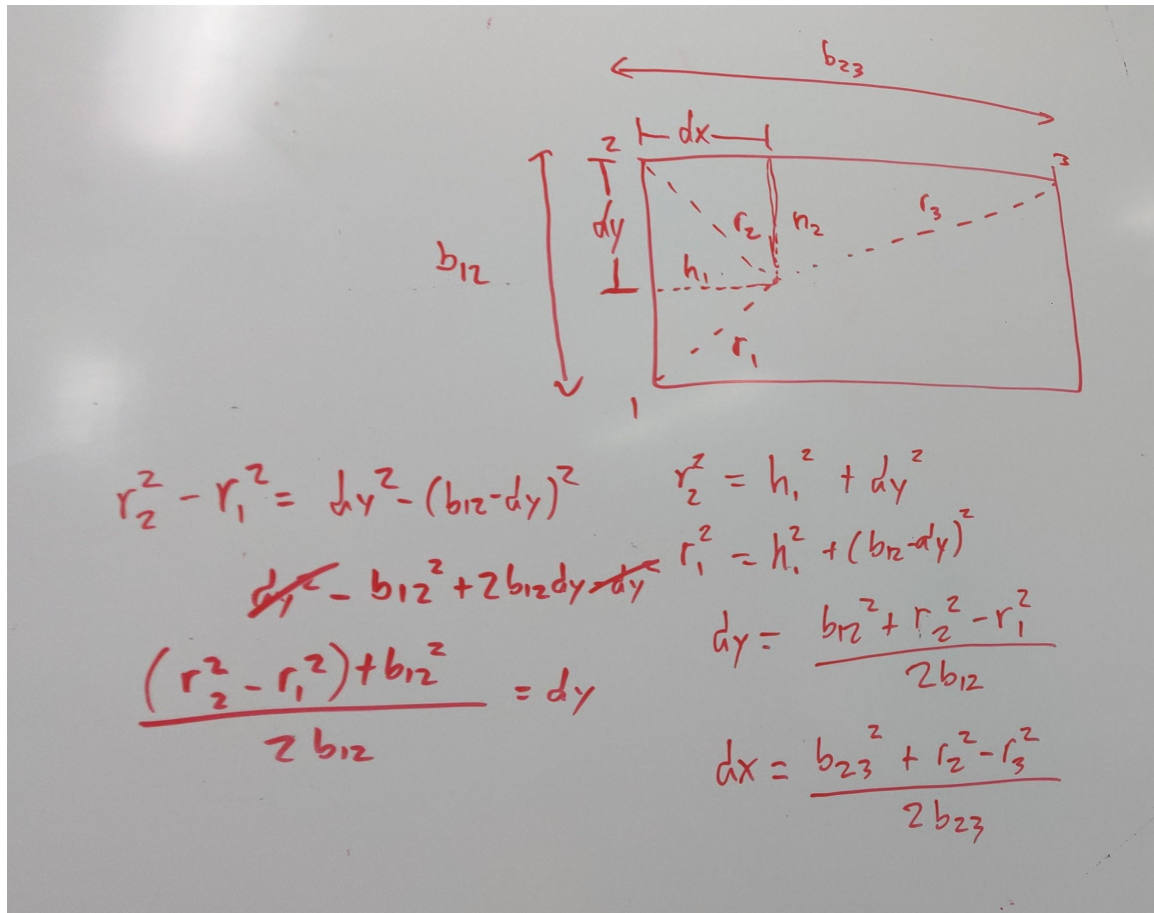 b₂₃
2 dx 3
dy r₂ h₂ r₃
b₁₂ h₁
r₁
1
r₂² - r₁² = dy² - (b₁₂-dy)²
dy² - b₁₂² + 2b₁₂dy - dy²
(r₂² - r₁²) + b₁₂²
2 b₁₂
= dy
r₂² = h₁² + dy²
r₁² = h₁² + (b₁₂-dy)²
dy = b₁₂² + r₂² - r₁²
2b₁₂
dx = b₂₃² + r₂² - r₃²
2b₂₃